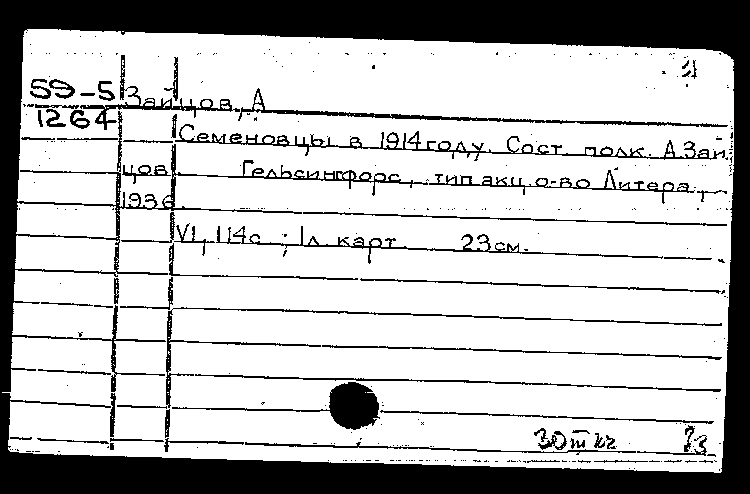 59-5 Зайцов, А
1264
Семеновцы в 1914 году. Сост полк. А.Зай
цов. Гельсингфорс, тип акц о-во Литера,
1936.
VI, 114с ; 1л карт 23см.
30 III кг